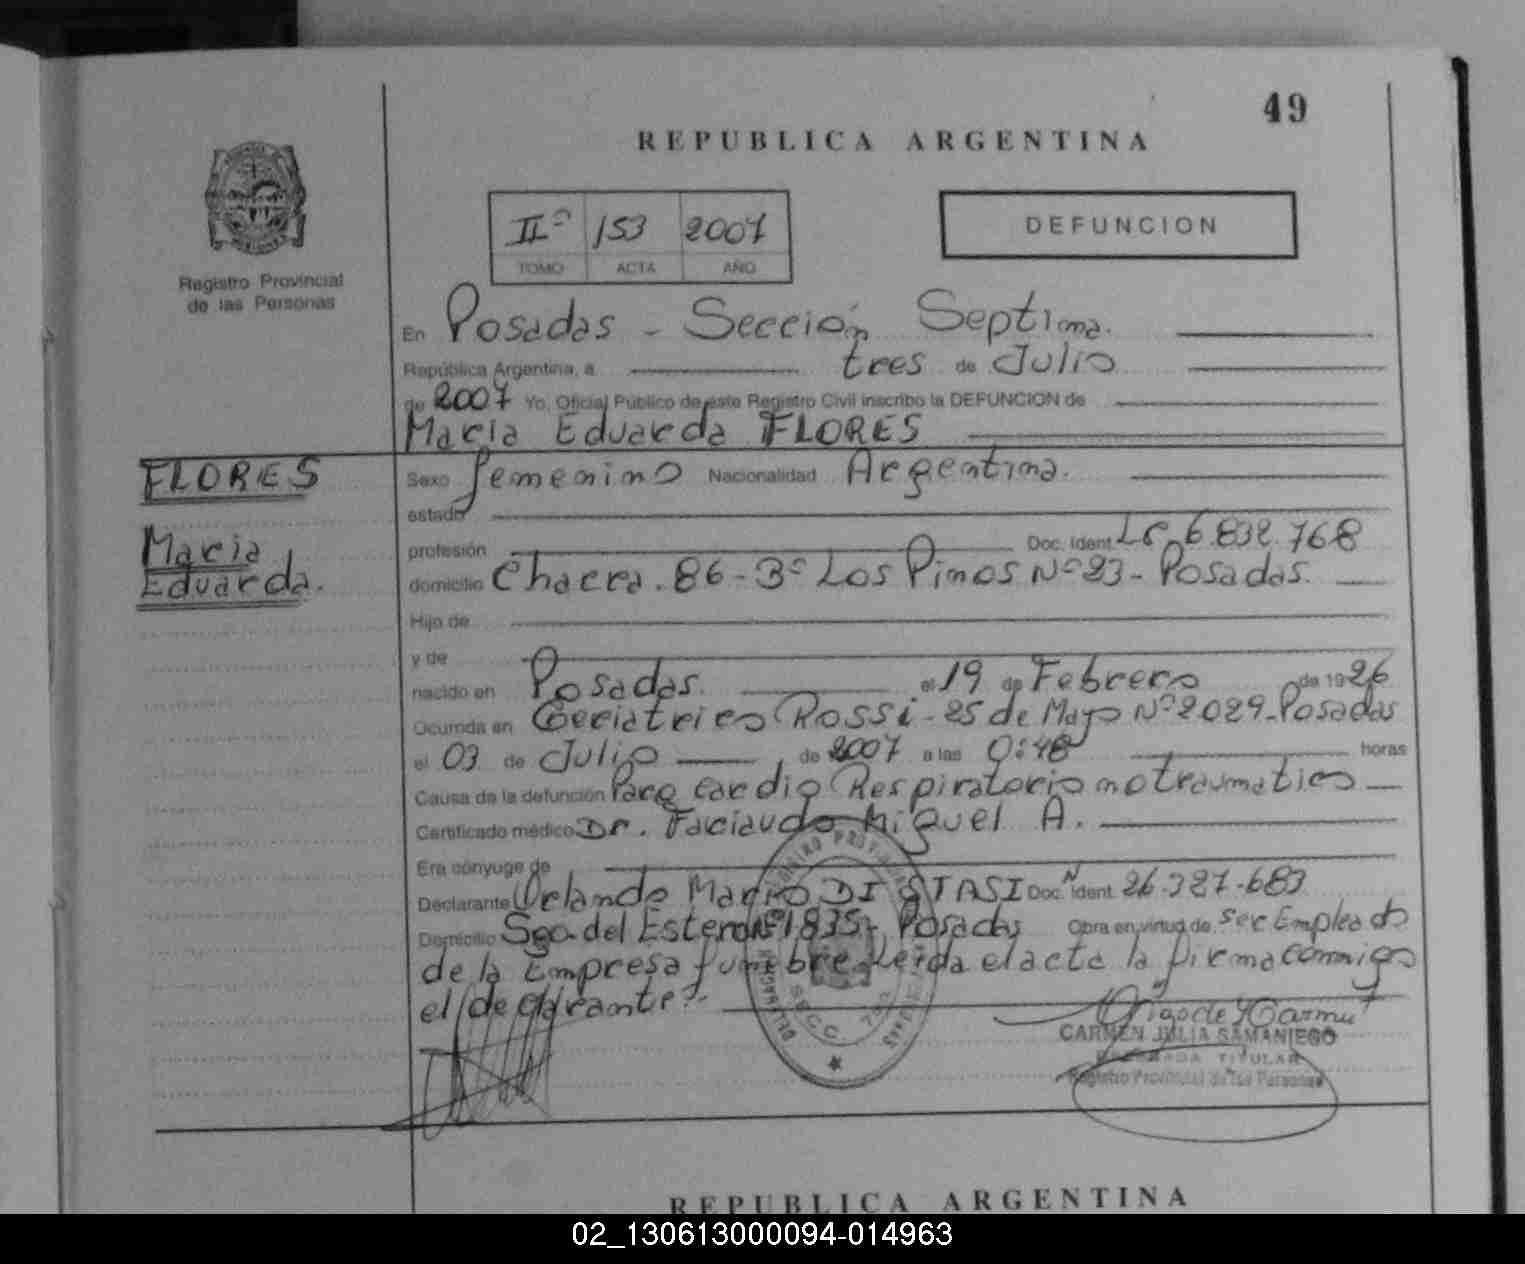 49
REPUBLICA ARGENTINA
IIº 153 2007
TOMO ACTA AÑO
DEFUNCION
Registro Provincial
de las Personas
En Posadas - Sección Septima.
República Argentina, a tres de Julio
de 2007 Yo, Oficial Público de este Registro Civil inscribo la DEFUNCION de
Maria Eduarda FLORES
FLORES
Maria
Eduarda.
Sexo femenino Nacionalidad Argentina.
estado
profesión Doc. Ident. LC. 6.832.768
domicilio Chacra. 86 - 3º Los Pinos Nº 23 - Posadas.
Hijo de
y de
nacido en Posadas. el 19 de Febrero de 1926
Ocurrida en Geriatrico Rossi - 25 de Mayo Nº 2029 - Posadas
el 03 de Julio de 2007 a las 0:48 horas
Causa de la defunción Paro Cardio Respiratorio no traumatico
Certificado médico Dr. Faciaudo Miguel A.
Era cónyuge de
Declarante Orlando Mario DI STASI Doc. N Ident. 26.327.683
Domicilio Sgo. del Estero Nº 1835 - Posadas Obra en virtud de ser Empleado
de la Empresa funebre Leida el acta la firma conmigo
el declarante.-
REGISTRO PROVINCIAL
DE LAS PERSONAS
DELEGACION
SECC. 7
CARMEN JULIA SAMANIEGO
TITULAR
Registro Provincial de las Personas
REPUBLICA ARGENTINA
02_130613000094-014963